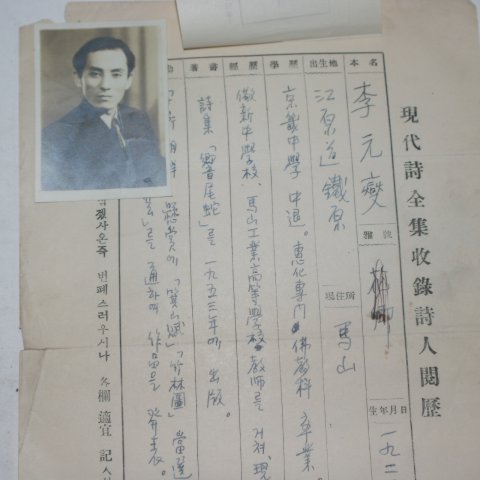 現代詩全集收錄詩人閱歷
名本 李元燮 雅號 生年月日 一九二
出生地 江原道鐵原 現住所 馬山
學歷 京畿中學 中退。惠化專門 佛敎科 卒業
經歷 儆新中學校、馬山工業高等學校 敎師를 거쳐、現
著書 詩集「響尾蛇」를 一九五三年에 出版。
懸賞에「箕山賦」「竹林圖」當選
를 通하여 作品을 發表。
사온즉 번폐스러우시나 各欄 適宜 記入